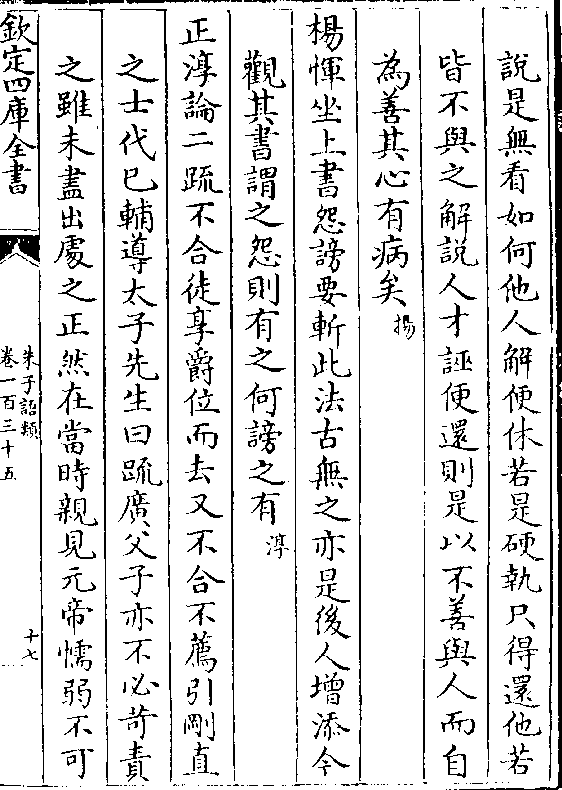 說是無看如何他人解便休若是硬執只得還他若
皆不與之解說人才誣便還則是以不善與人而自
為善其心有病矣 揚
楊惲坐上書怨謗要斬此法古無之亦是後人增添今
觀其書謂之怨則有之何謗之有 淳
正淳論二疏不合徒享爵位而去又不合不薦引剛直
之士代已輔導太子先生曰疏廣父子亦不必苛責
之雖未盡出處之正然在當時親見元帝懦弱不可
欽定四庫全書
朱子語類
卷一百三十五
十七